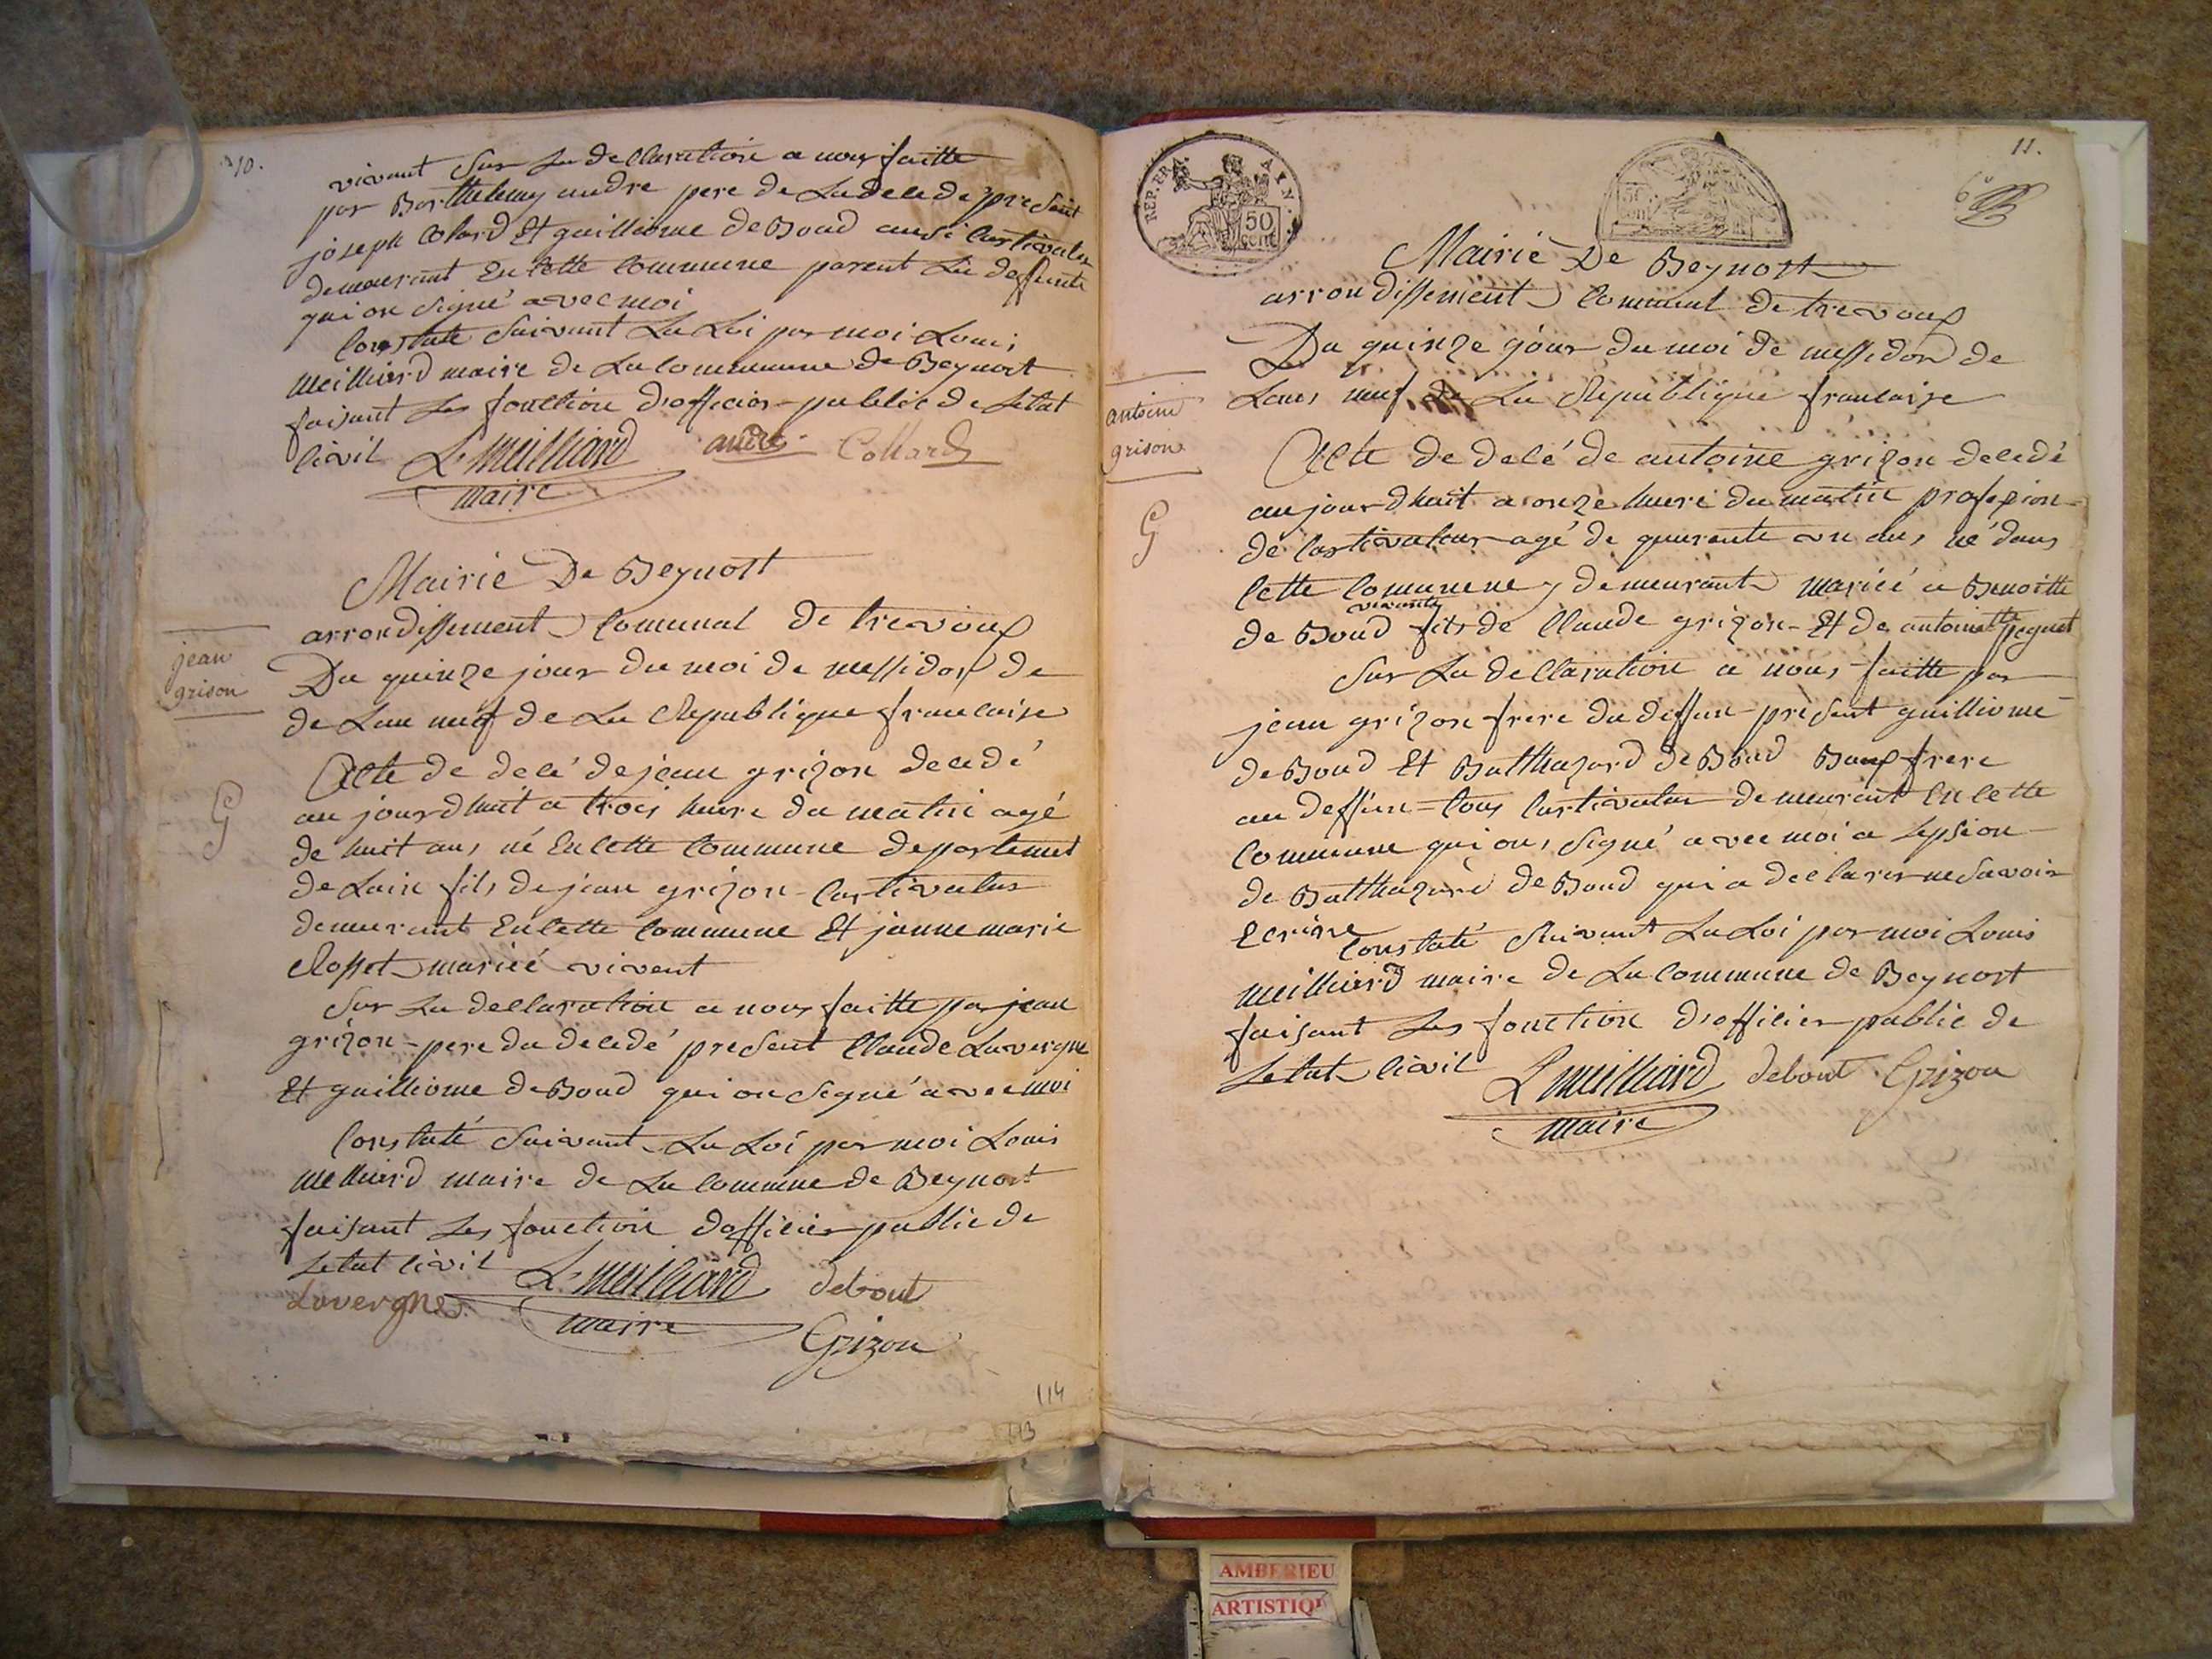 10.
vivant Sur La declaration a nous faitte
par Barthelemy andre pere de La decede present
joseph Colard Et guilliome deBoud ausi Cultivateur
demeurant En Cette Commune parent La deffunte
qui on Signé avec moi
Constate Suivant La Loi par moi Louis
meilliard maire de La Commune de Beynost
faisant Les fonction d'officier public de Letat
Civil L. Meilliard andre Collard
maire
Mairie De Beynost
arrondissement Comunal de trevoux
jean
grison
Du quinze jour du moi de messidor de
de Lan neuf de La Republique francaise
Acte de decé de jean grizon decedé
G
au jourdhuit a trois heure du matin agé
de huit ans né En Cette Commune departement
de Lain fils de jean grizon Cultivateur
demeurant En Cette Commune Et janne marie
Rosset mariée vivent
Sur La declaration a nous faitte par jean
grizon pere du decedé present Claude Lavergne
Et guilliome deBoud qui on Signé avec moi
Constaté Suivant La Loi par moi Louis
Melliard maire de La Commune de Beynost
faisant Les fonction d'officier public de
Letat Civil L. Meilliard debout
Lavergne maire
Grizon
114
113
REP. FRA. AYN.
50
cent.
11.
6e
Mairie De Beynost
arrondissement Communal de trevoux
Du quinze jour du moi de messidor de
antoine
grison
Lans neuf de La Republique francaise
Acte de decé de antoine grizon decedé
G
aujourdhuit a onze heure du matin profession
de Cultivateur agé de quarente un ans né dans
Cette Commune y demeurant mariée a Benoitte
vivante
de Boud fils de Claude grizon Et de antoinette peguet
Sur La declaration a nous faitte par
jean grizon frere du deffun present guilliome
deBoud Et Balthazard deBoud Baux frere
au deffun tous Cultivateur demeurant En Cette
Commune qui ons Signé avec moi a Lepsion
de Balthazard deBoud qui a declarer ne Savoir
Ecrirre
Constaté Suivant La Loi par moi Louis
meilliard maire de La Commune de Beynost
faisant Les fonction d'officier public de
Letat Civil L. Meilliard debout Grizon
maire
AMBERIEU
ARTISTIQU